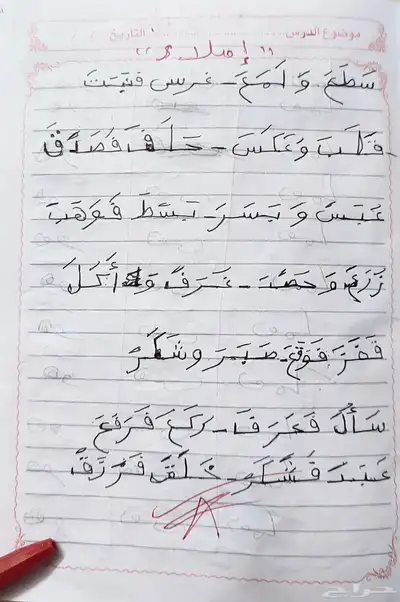 موضوع الدرس التاريخ
((إملاء))
سَطَعَ وَ لَمَعَ - غرس فنبتت
قَلَبَ وَعَكَسَ - حَلَفَ فَصَدَقَ
عَبَسَ وَ يَسَرَ - بَسَطَ فَوَهَبَ
زَرَعَ وَ حَصَدَ - غَرَفَ وَ أَكَلَ
قَفَزَ فَوَقَعَ - صَبَرَ وشَكَرَ
سَأَلَ فَعَرَفَ - رَكَعَ فَرَفَعَ
عَبَدَ فَشَكَرَ - خَلَقَ فَرَزَقَ
حراج